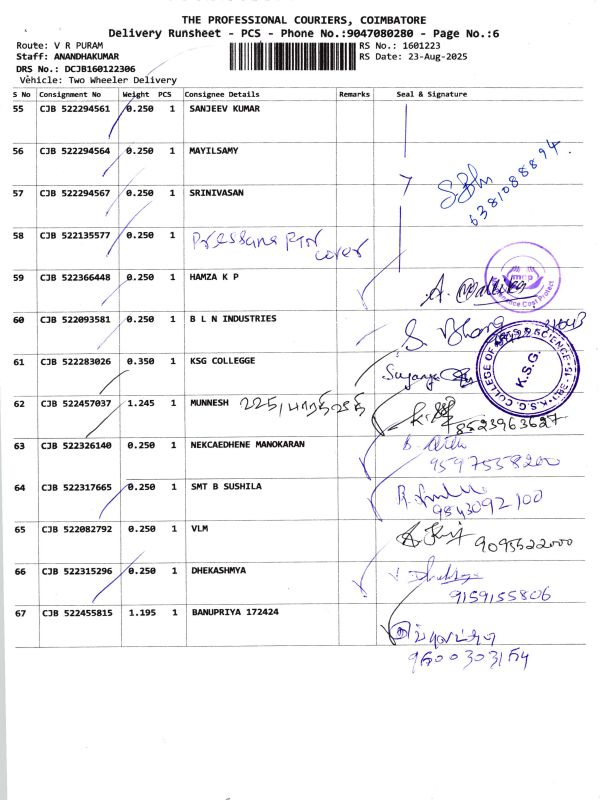 THE PROFESSIONAL COURIERS, COIMBATORE
Delivery Runsheet - PCS - Phone No.:9047080280 - Page No.:6
Route: V R PURAM RS No.: 1601223
Staff: ANANDHAKUMAR RS Date: 23-Aug-2025
DRS No.: DCJB160122306
Vehicle: Two Wheeler Delivery
S No Consignment No Weight PCS Consignee Details Remarks Seal & Signature
55 CJB 522294561 0.250 1 SANJEEV KUMAR
56 CJB 522294564 0.250 1 MAYILSAMY
57 CJB 522294567 0.250 1 SRINIVASAN
6381088894
58 CJB 522135577 0.250 1
cover
59 CJB 522366448 0.250 1 HAMZA K P
60 CJB 522093581 0.250 1 B L N INDUSTRIES
61 CJB 522283026 0.350 1 KSG COLLEGGE
K.S.G.
62 CJB 522457037 1.245 1 MUNNESH 225/
8523963627
63 CJB 522326140 0.250 1 NEKCAEDHENE MANOKARAN
9597538200
64 CJB 522317665 0.250 1 SMT B SUSHILA
9843092100
65 CJB 522082792 0.250 1 VLM
9095522000
66 CJB 522315296 0.250 1 DHEKASHMYA
9159155806
67 CJB 522455815 1.195 1 BANUPRIYA 172424